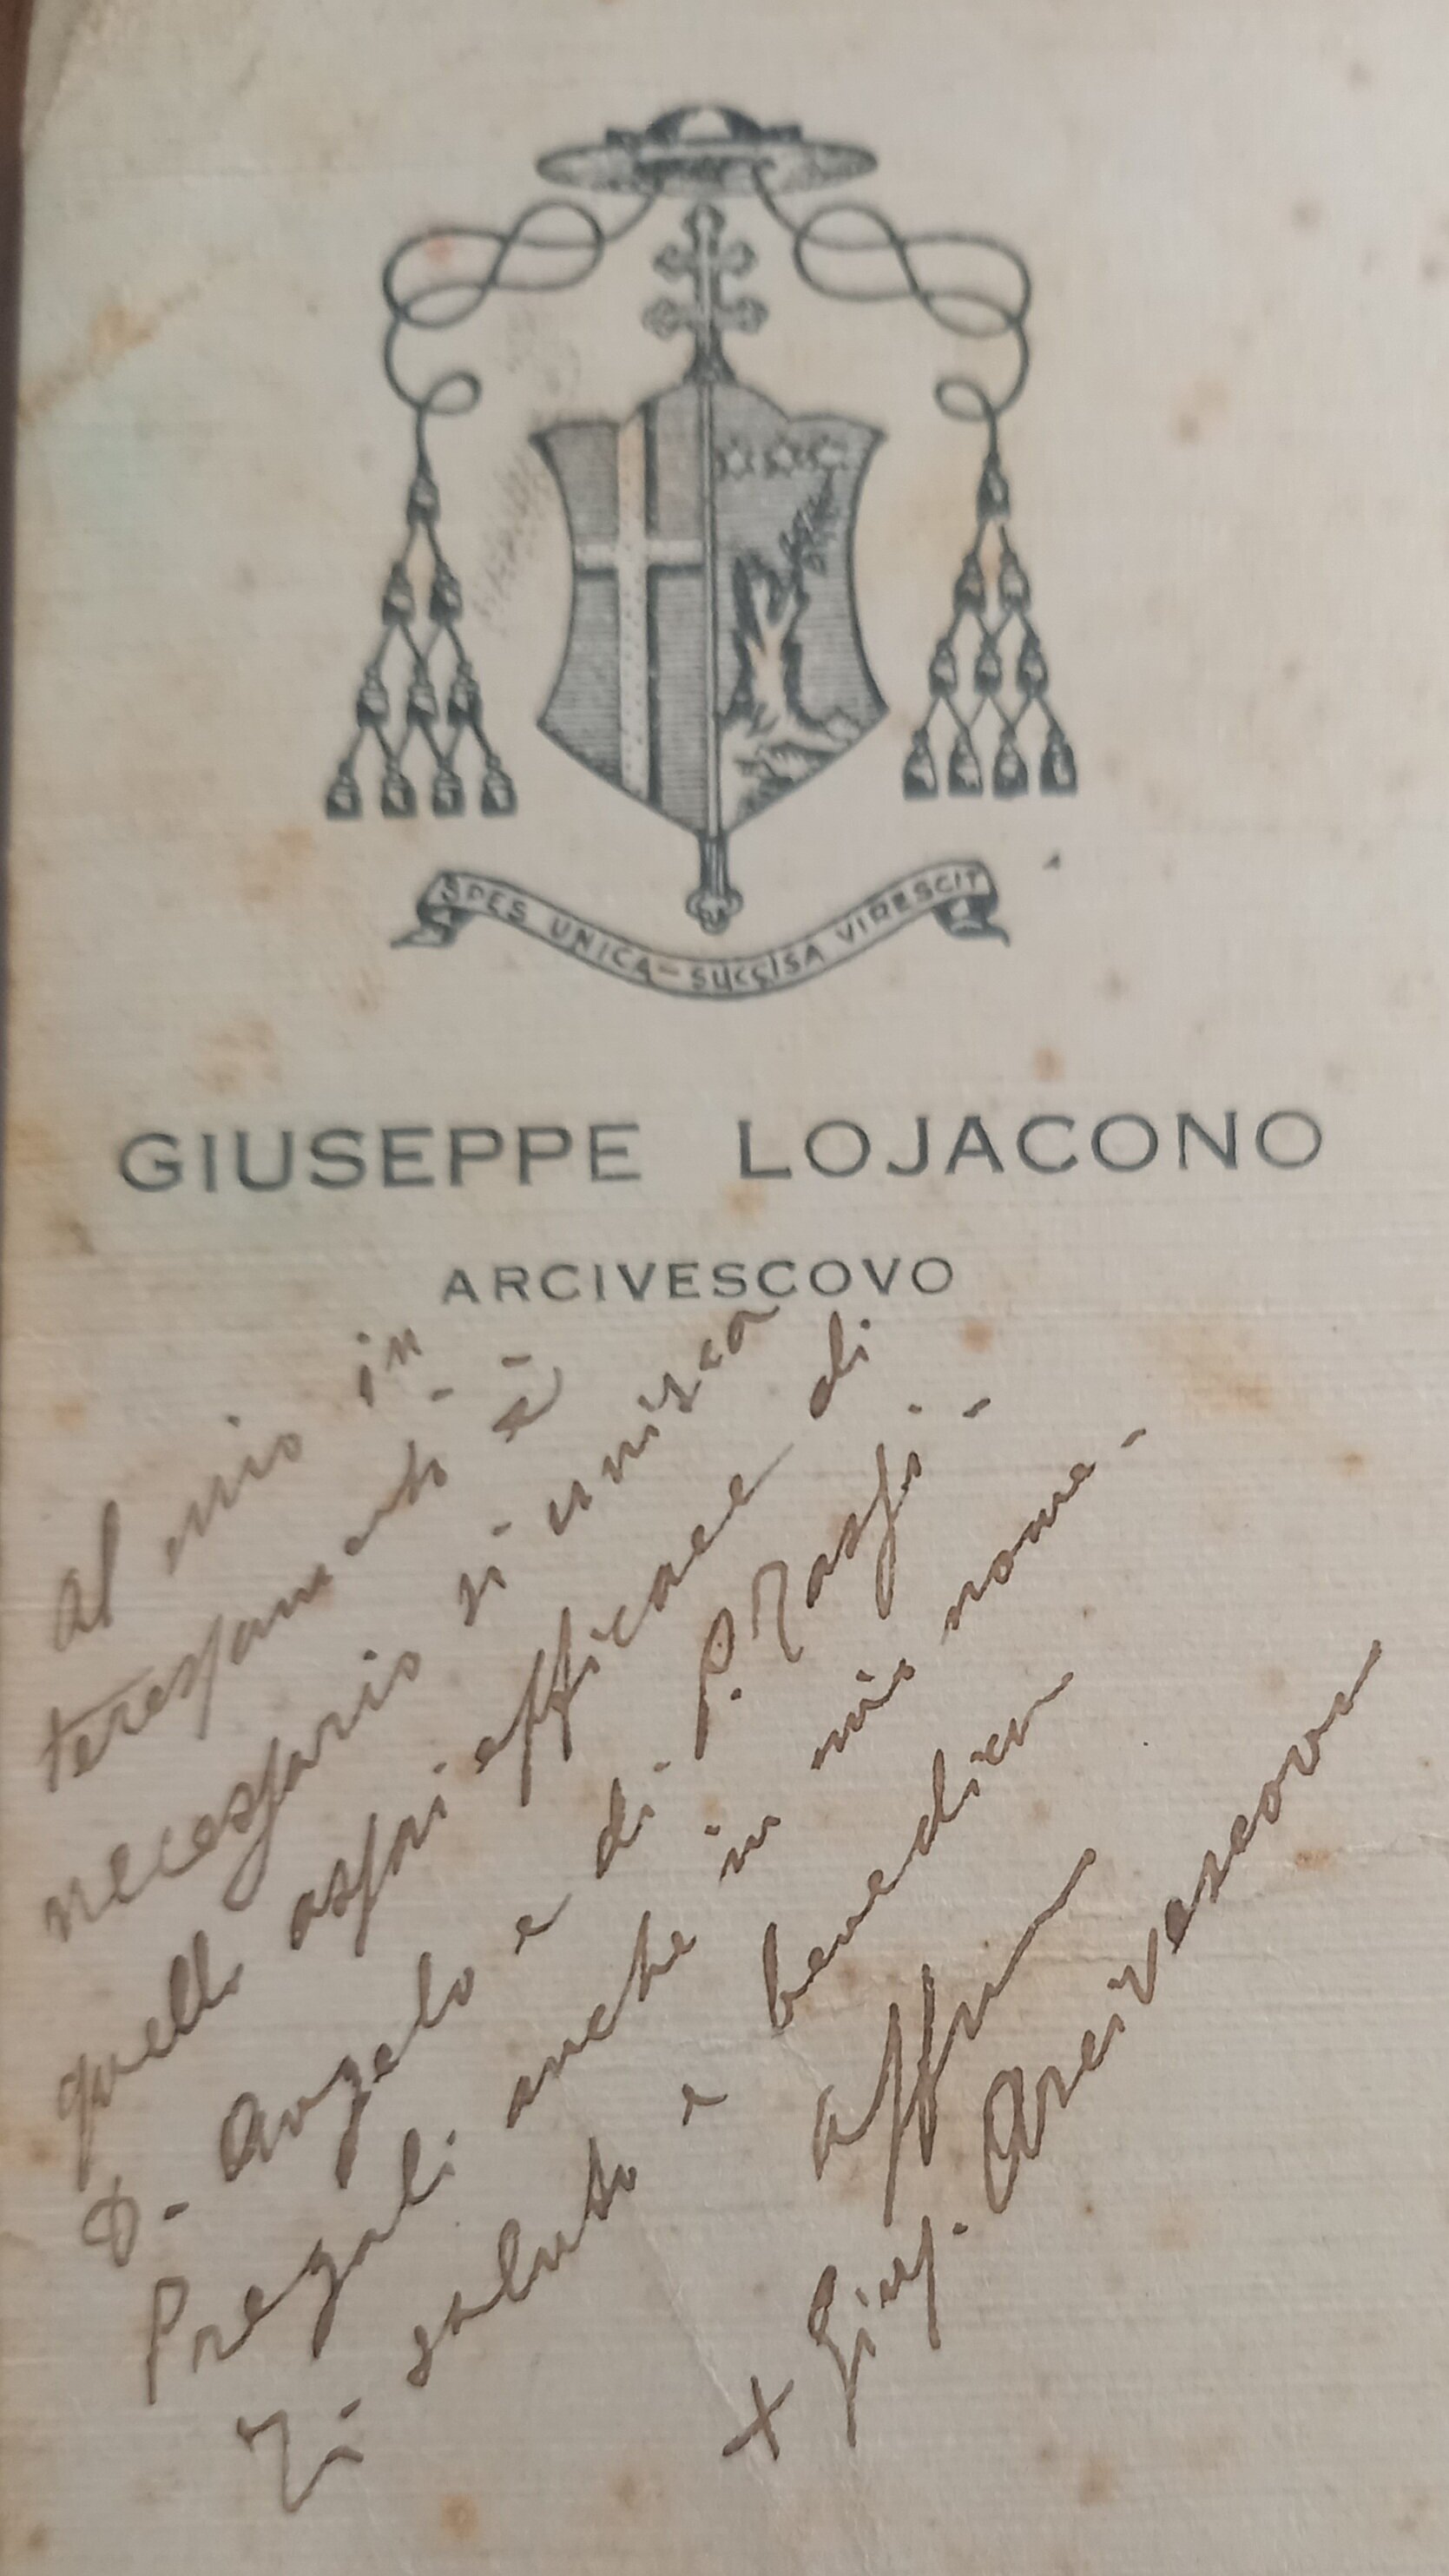 SPES UNICA - SUCCISA VIRESCIT
GIUSEPPE LOJACONO
ARCIVESCOVO
Al mio in
teressamento è
necessario si unisca
quello assai efficace di
D. Angelo e di P.
Pregali anche in mio nome.
Ti saluto e benedico
affmo
+ Gius. Arcivescovo